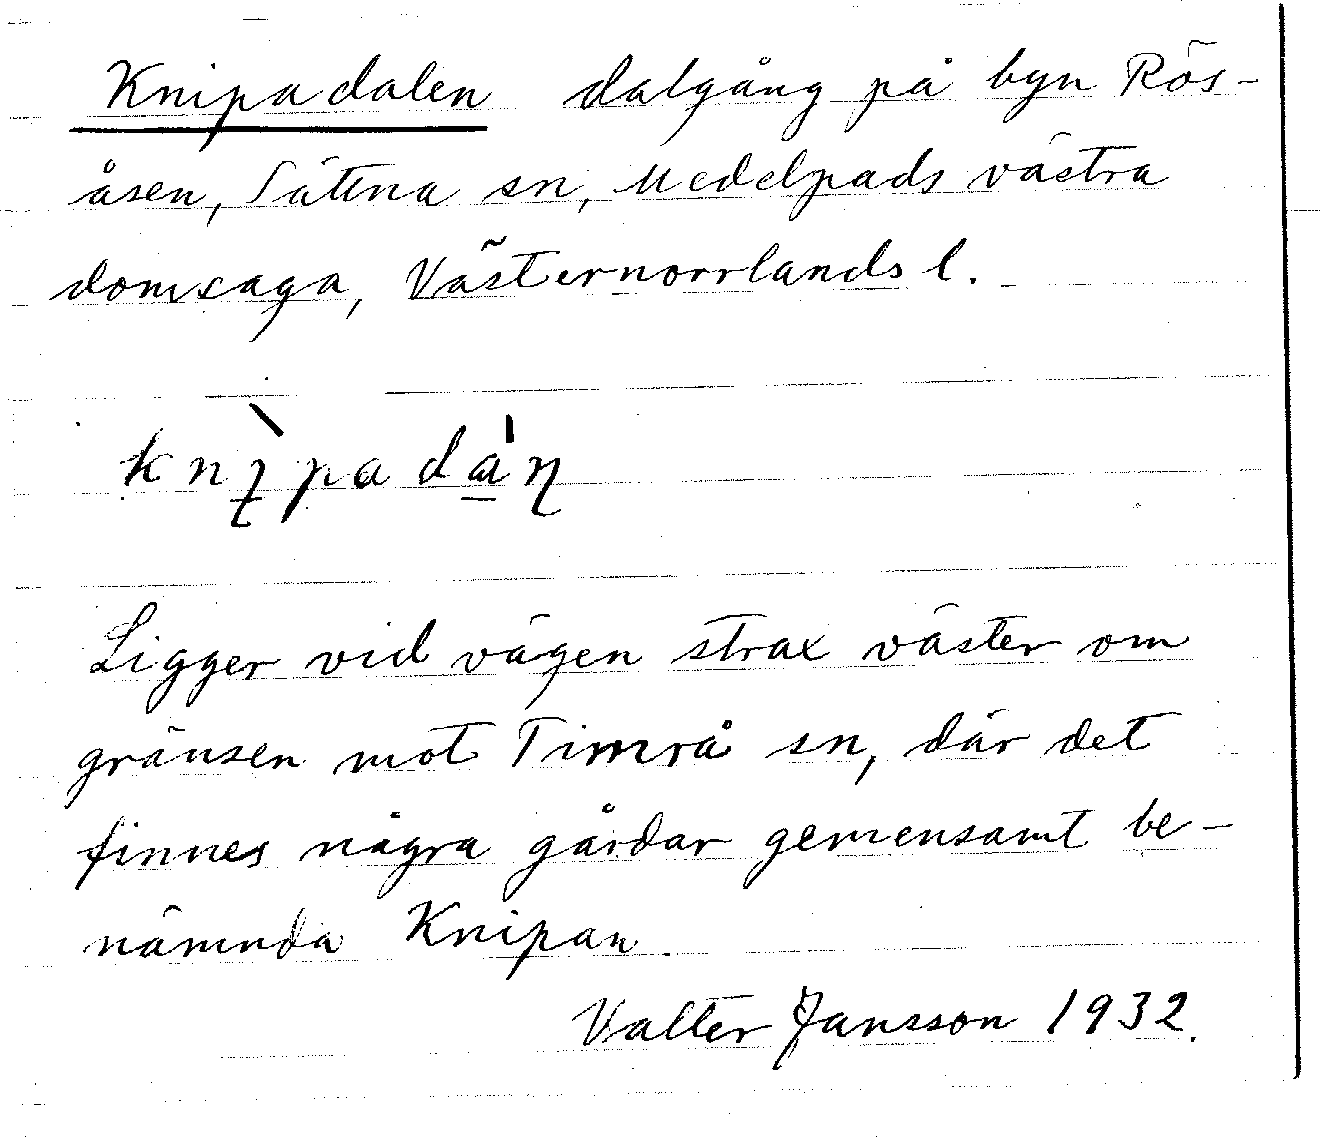 Knipadalen dalgång på byn Rös-
åsen, Sättna sn, Medelpads västra
domsaga, Västernorrlands l.
knı̨̀pada̱̍ŋ
Ligger vid vägen strax väster om
gränsen mot Timrå sn, där det
finnes några gårdar gemensamt be-
nämnda Knipan.
Valter Jansson 1932.